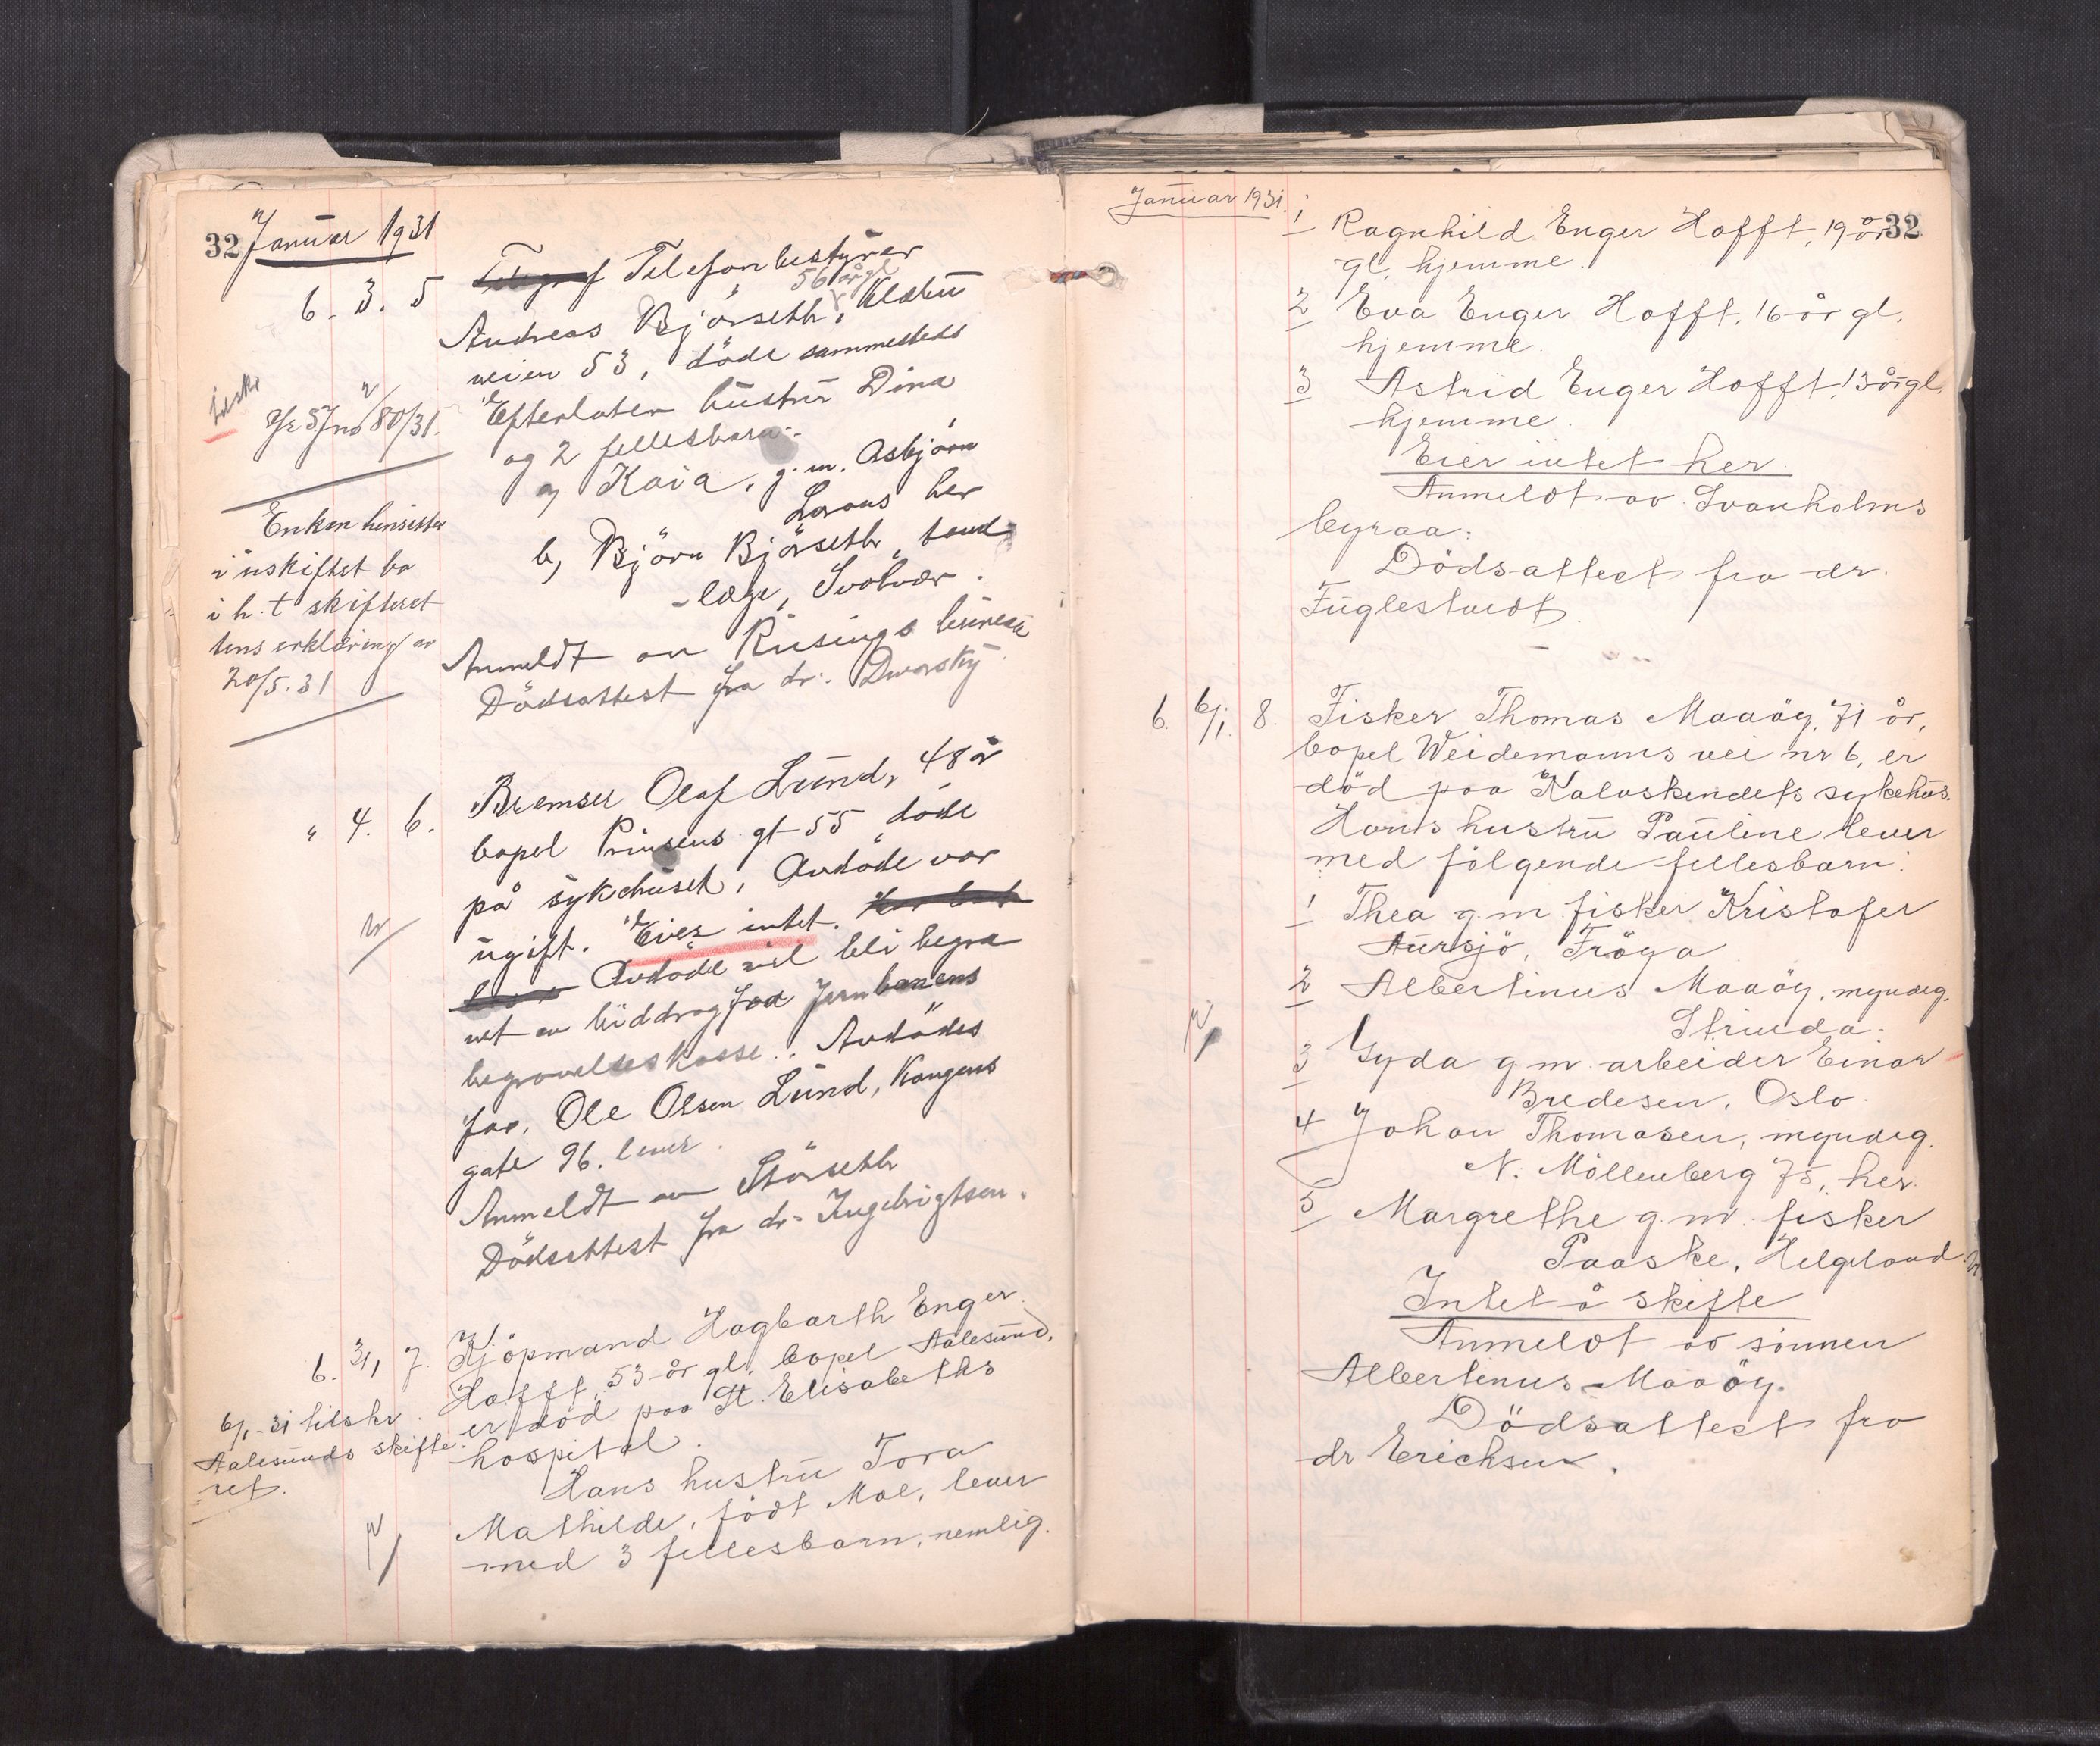 32 Januar 1931
6. 3. 5 Telegraf Telefonbestyrer
56 årgl
Andreas Bjørseth, Klæbu
veien 53, döde sammesteds
Efterlater hustru Dina
og 2 fellesbarn:
a, Kaia, g.m. Asbjørn
her
b, Björn Björseth, tand
-læge, Svolvær.
Anmeldt av Risings
Dödsattest fra dr.
80/31.
Enken hensitter
i uskiftet bo
i h.t skifteret
tens erklæring av
20/5.31
" 4. 6. Bremser Olaf Lund, 48 år
bopel Prinsens gt 55 döde
på sykehuset, Avdöde var
ugift. Eier intet.
Avdöde vil bli begra
vet av biddrag fra Jernbanens
begravelseskasse. Avdödes
far, Ole Olsen Lund, Kongens
gate 96. lever.
Anmeldt av Störseth
Dödsattest fra dr. Ingebrigtsen.
6. 3/1 7. Kjöpmand Hagbarth Enger
Hofft, 53 år gl. bopel Aalesund,
er död paa St. Elisabeths
hospital.
Hans hustru Tora
Mathilde, födt Moe, lever
med 3 fellesbarn, nemlig.
6/1-31 tilskr.
Aalesunds skifte
ret.
Januar 1931.
32
1 Ragnhild Enger Hofft, 19 år
gl, hjemme.
2 Eva Enger Hofft, 16 år gl.
hjemme.
3 Astrid Enger Hofft, 13 årgl.
hjemme.
Eier intet her.
Anmeldt av Svanholms
byraa.
Dödsattest fra dr.
Fuglestvedt.
6. 6/1. 8. Fisker Thomas Maaöy, 71 år,
bopel Weidemanns vei nr 6, er
död paa Kalvskindets sykehus.
Hans hustru Pauline lever
med fölgende fellesbarn:
1 Thea g.m fisker Kristofer
Aursjö, Fröya
2 Albertinus Maaöy, myndig,
Strinda.
3 Gyda g.m. arbeider Einar
Bredesen, Oslo.
4 Johan Thomasen, myndig.
N. Möllenberg 75, her.
5 Margrethe g.m. fisker
Paaske, Helgeland.
Intet å skifte
Anmeldt av sönnen
Albertinus Maaöy.
Dödsattest fra
dr Erichsen.